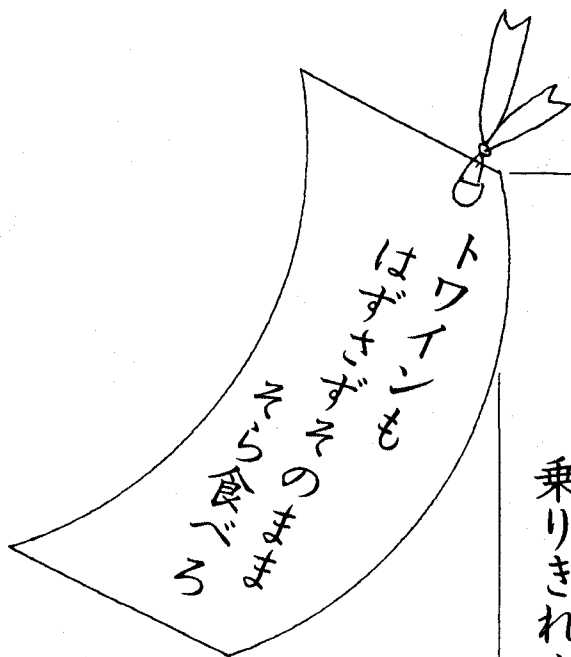 トワインも
はずさずそのまま
そら食べろ
乗りきれ